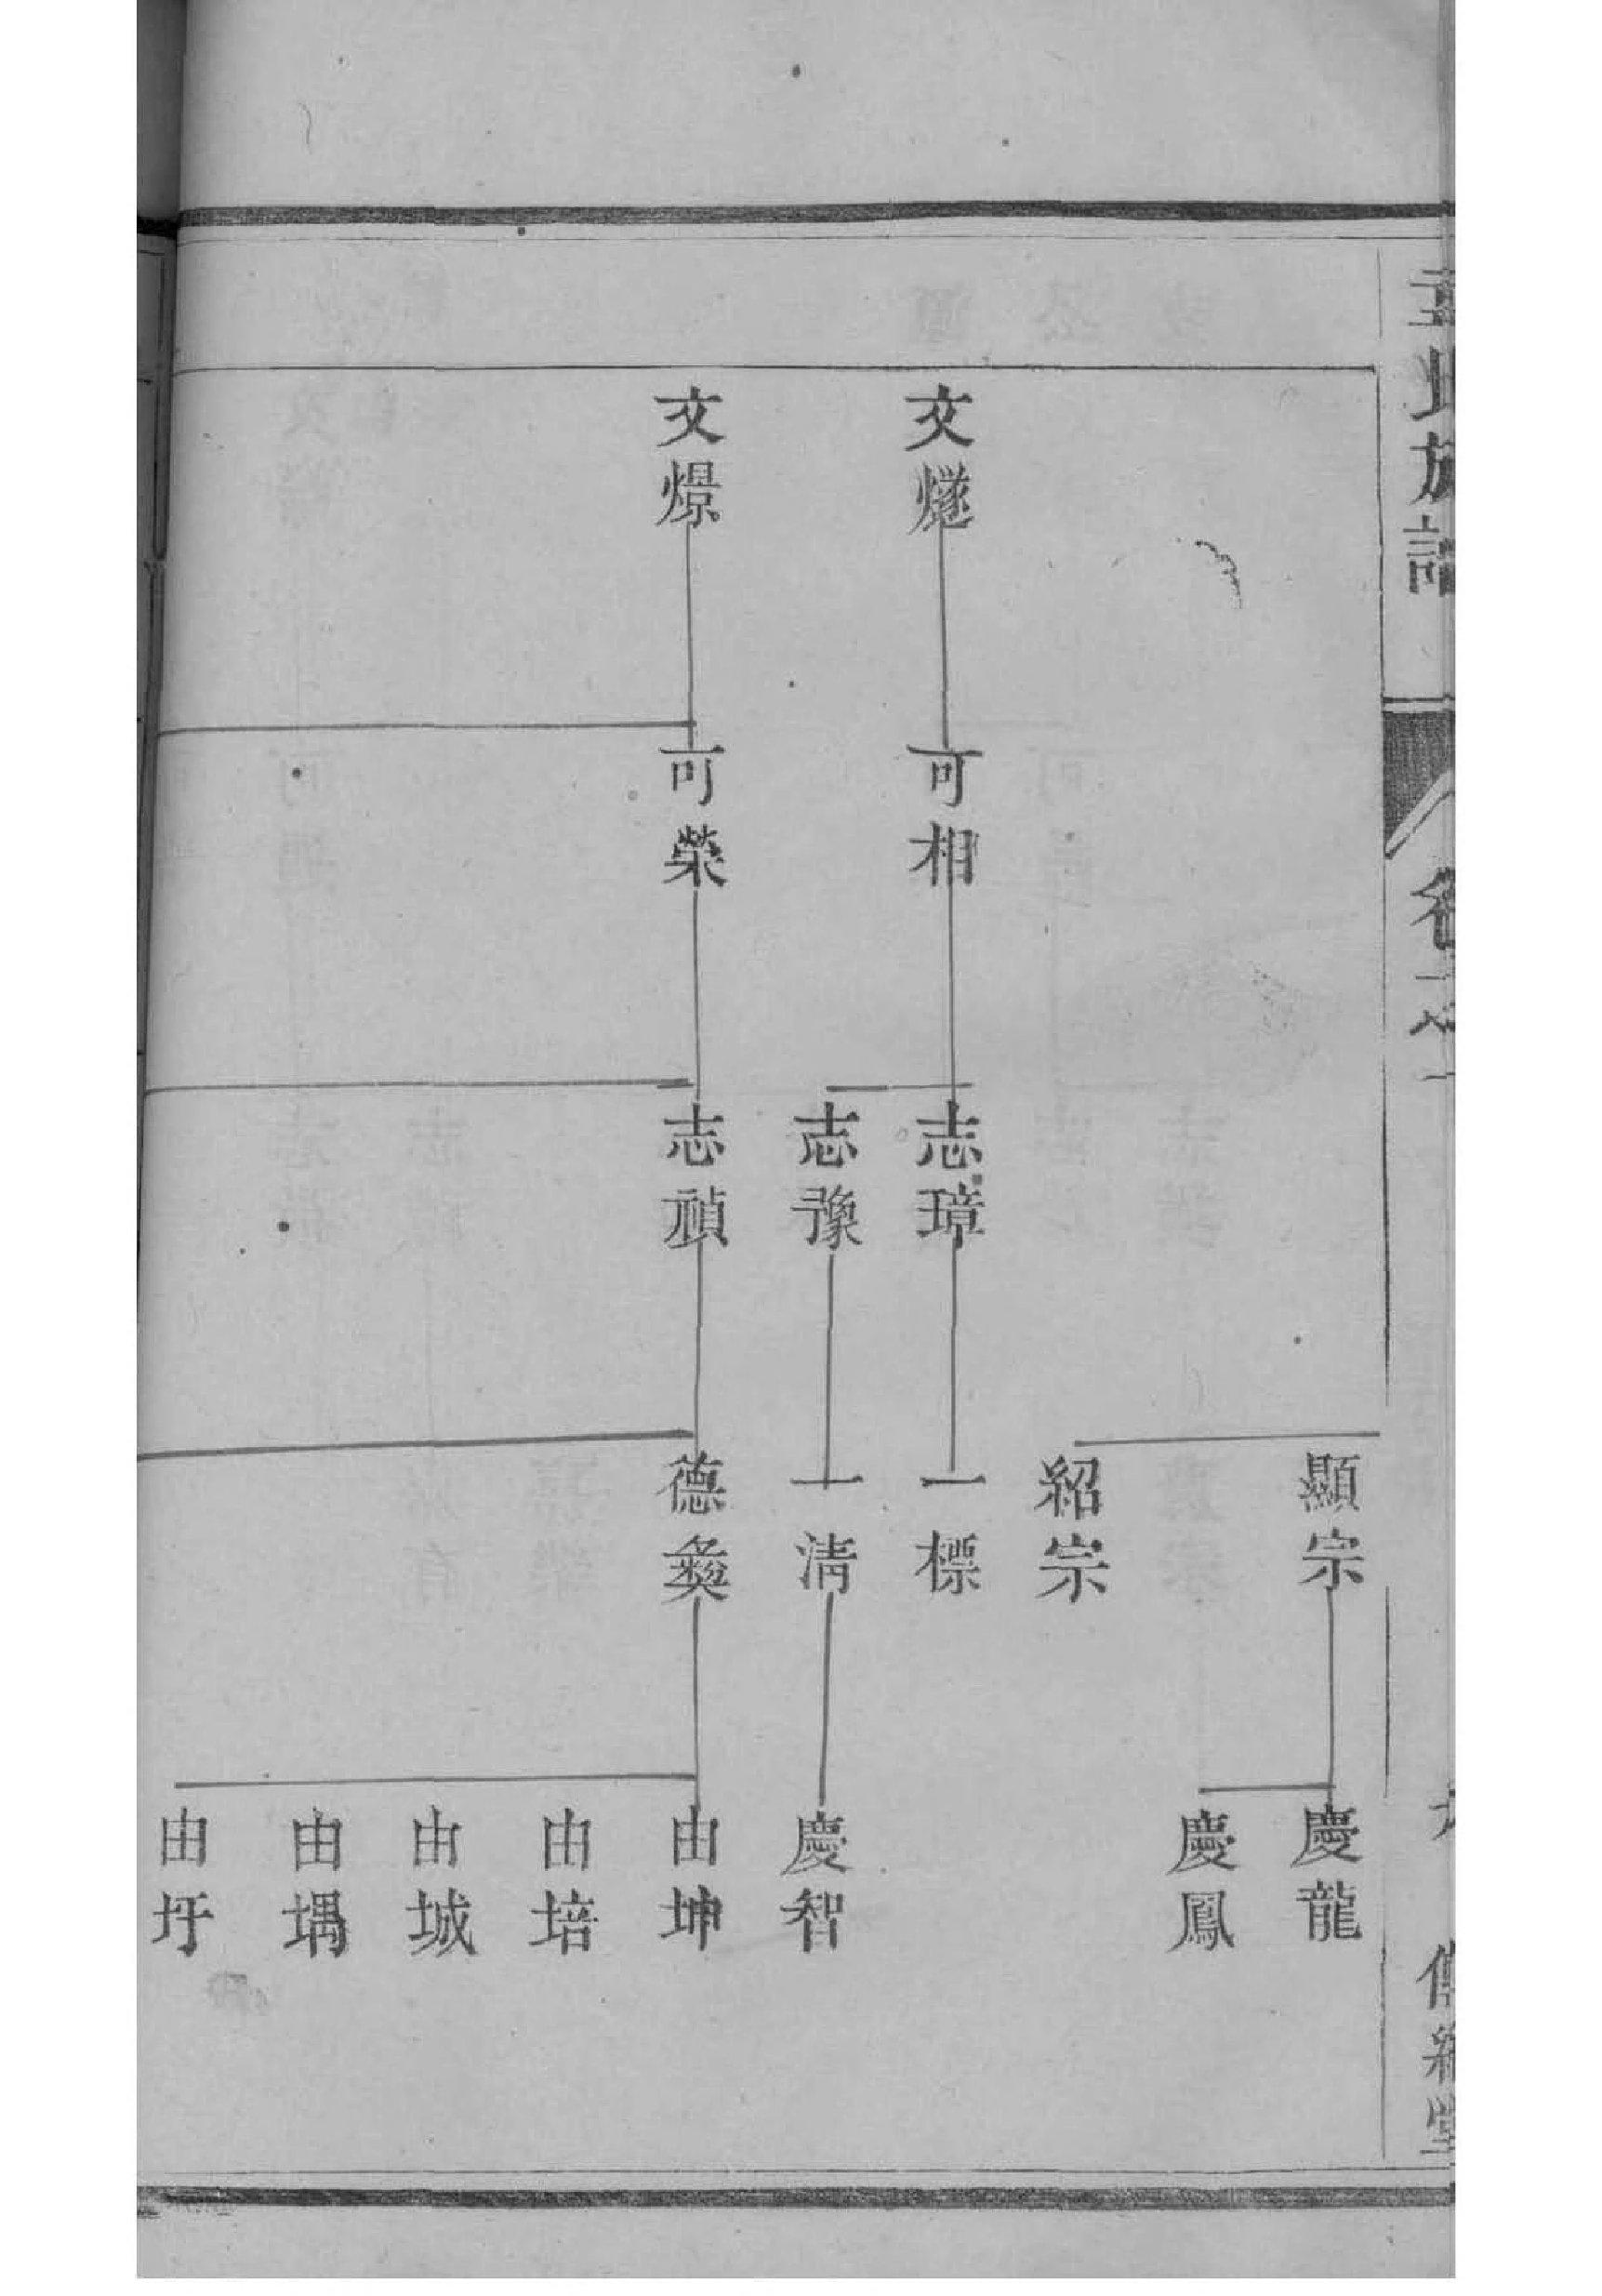 族譜
卷之一
顯宗
慶龍
慶鳳
紹宗
文燧
可相
志璋
一標
志豫
一清
慶智
文燝
可榮
志禎
德彜
由坤
由培
由城
由堣
由圩